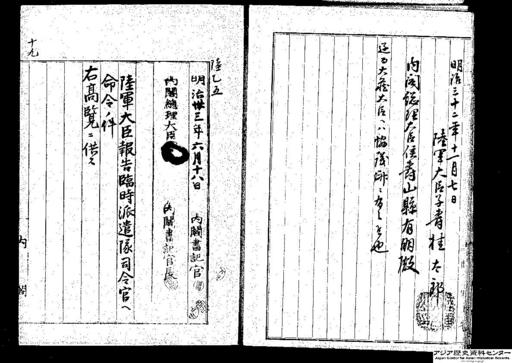 明治三十二年十一月七日
陸軍大臣子爵桂太郎
内閣総理大臣侯爵山縣有朋殿
追テ大蔵大臣ヘハ協議済ニ有之候也
陸乙五
明治卅三年六月十八日
内閣書記官
内閣総理大臣
内閣書記官長
陸軍大臣報告臨時派遣隊司令官ヘ
命令ノ件
右高覧ニ供ス
内閣
十九
アジア歴史資料センター
Japan Center for Asian Historical Records